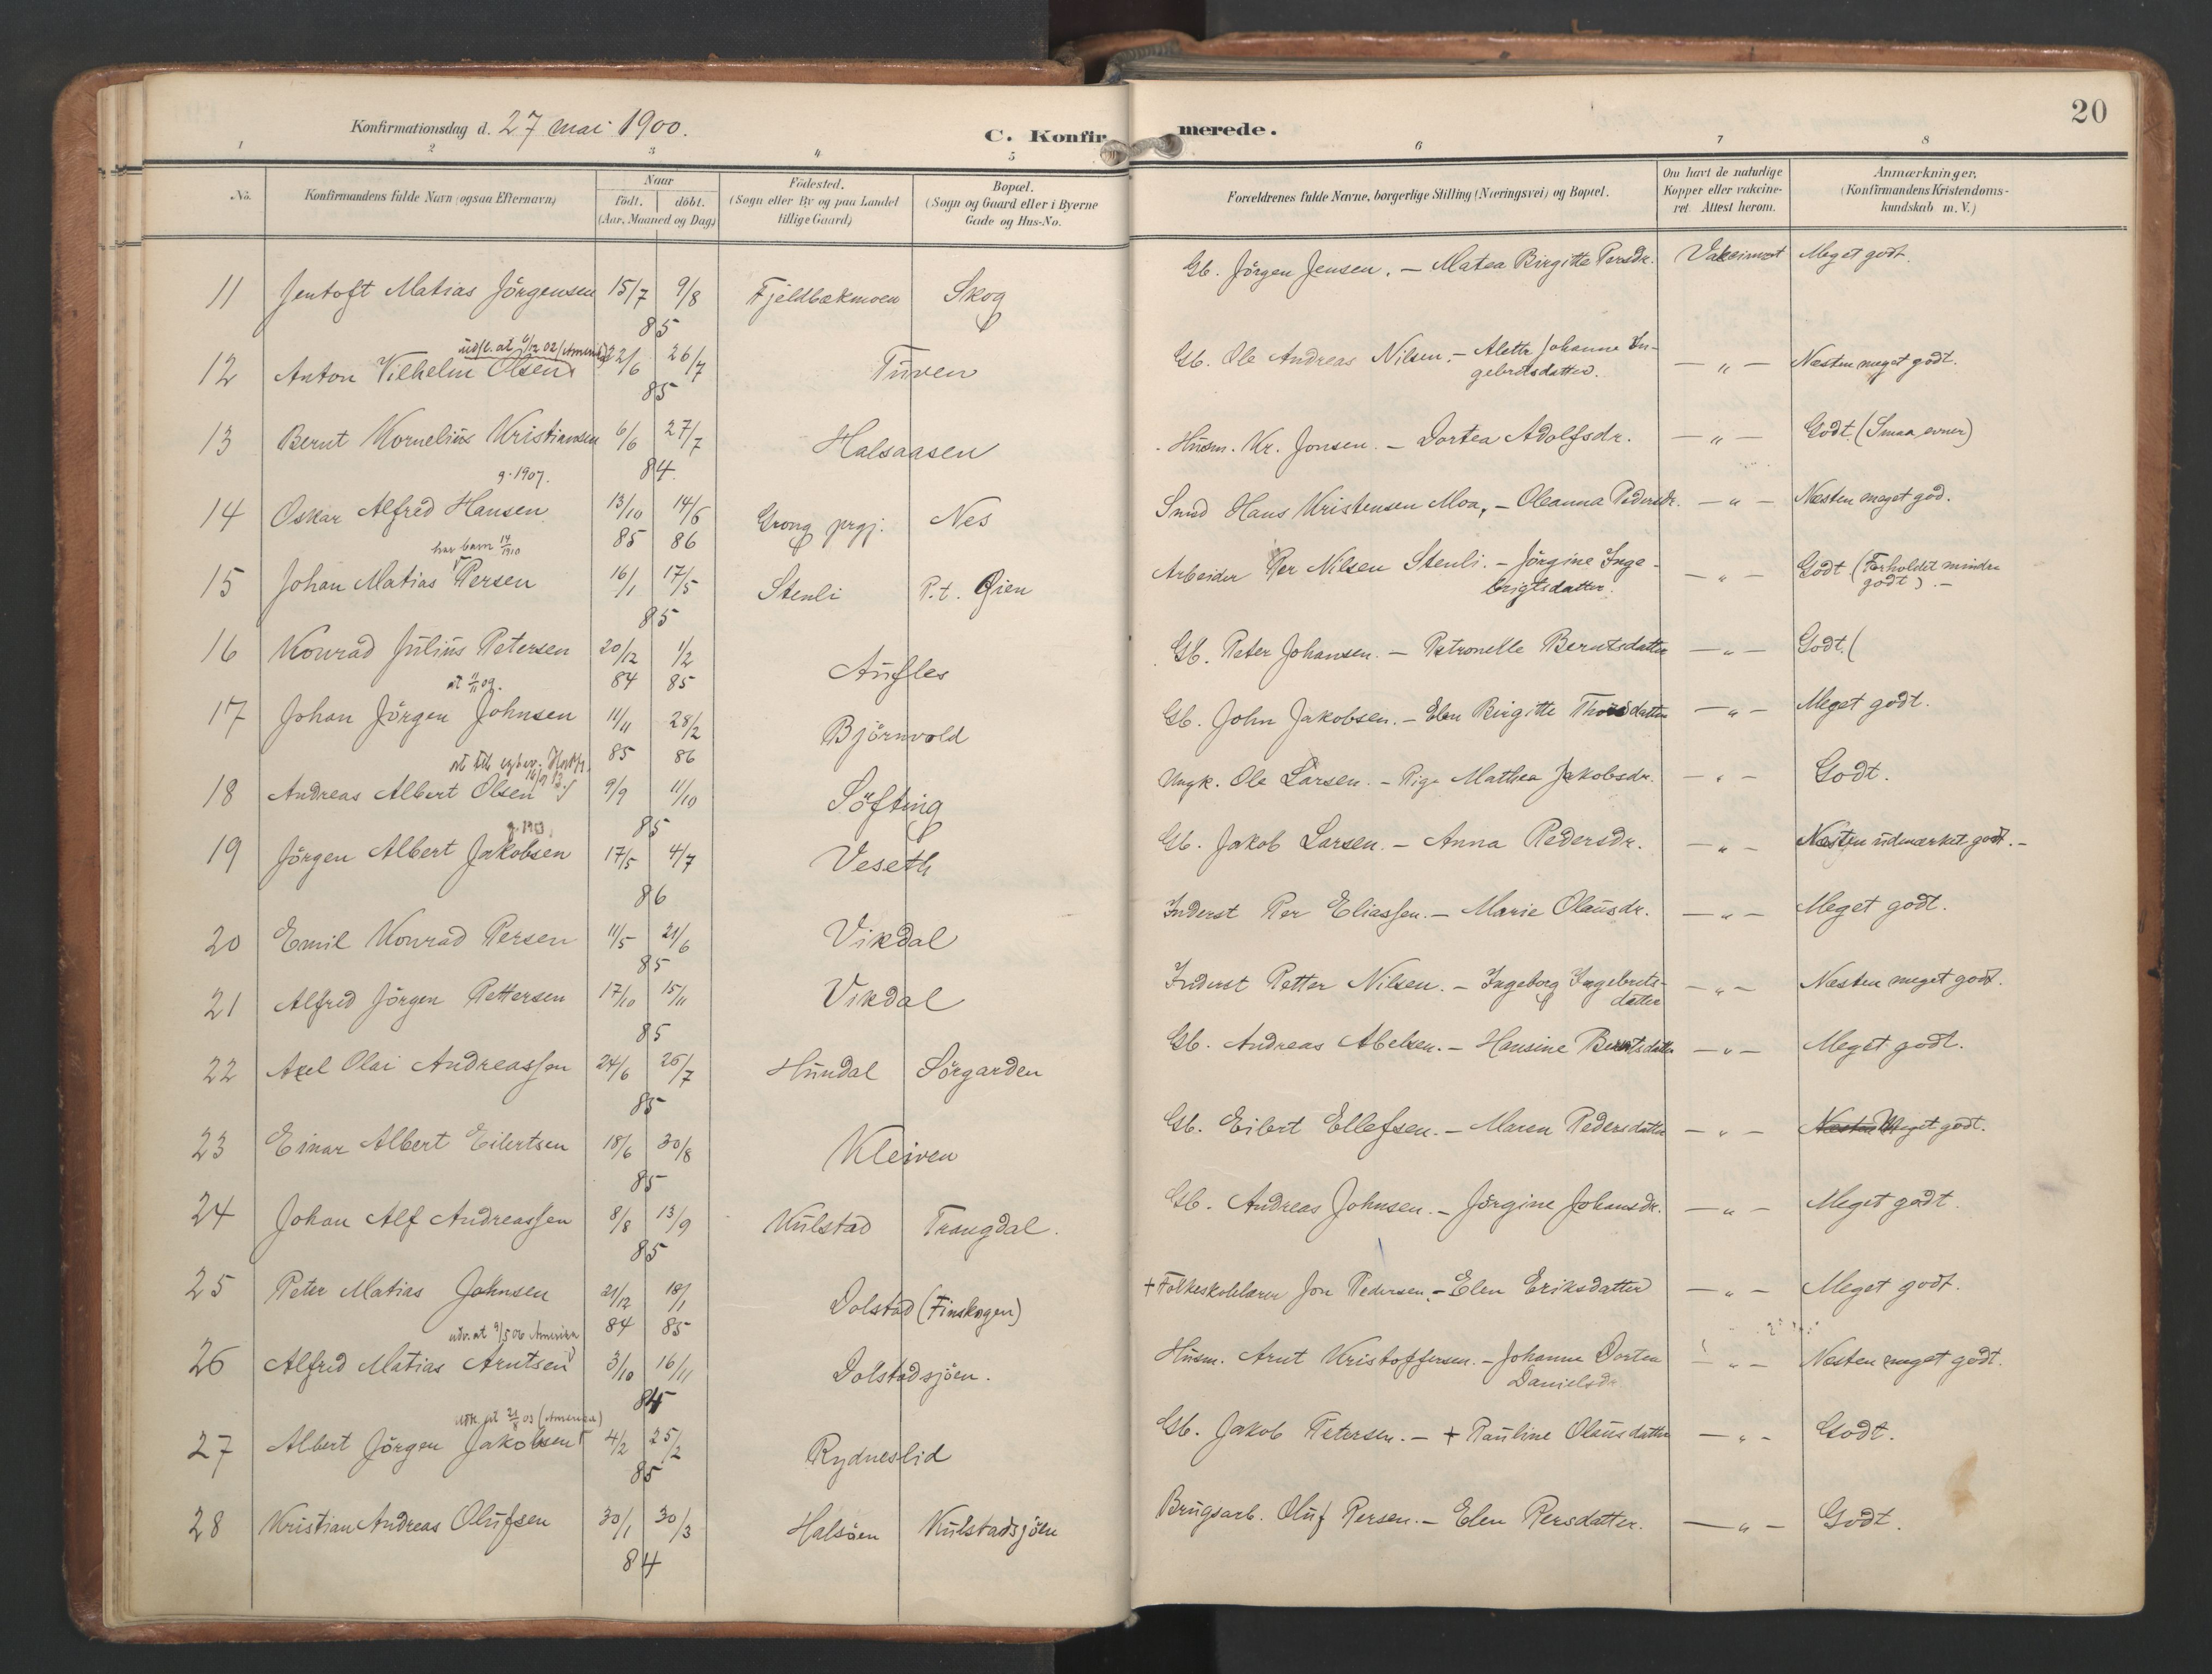 20
Konfirmationsdag d. 27 mai 1900.
C. Konfirmerede.
1 2 3 4 5 6 7 8
No. Konfirmandens fulde Navn (ogsaa Efternavn) Naar födt. döbt. (Aar, Maaned og Dag) Födested. (Sogn eller By og paa Landet tillige Gaard) Bopæl. (Sogn og Gaard eller i Byerne Gade og Hus-No. Forældrenes fulde Navne, borgerlige Stilling (Næringsvei) og Bopæl. Om havt de naturlige Kopper eller vakcineret. Attest herom. Anmærkninger. (Konfirmandens Kristendomskundskab m. V.)
11 Jentoft Matias Jörgensen 15/7 9/8 85 Fjeldbækmoen Skog Gb. Jörgen Jensen. — Matea Birgitte Persdr. Vakcinert Meget godt.
udfl. at 6/12 02 (Amerika)
12 Anton Vilhelm Olsen 22/6 26/7 85 Tuven Gb. Ole Andreas Nilsen. — Alette Johanne Ingebretsdatter. — „ — Næsten meget godt.
13 Bernt Kornelius Kristiansen 6/6 27/7 84. Halsaasen Husm. Kr. Jonsen. — Dortea Adolfsdr. — „ — Godt. (Smaa evner)
g. 1907.
14 Oskar Alfred Hansen 13/10 85 14/6 86 Grong prgj. Nes Smed Hans Kristensen Moa, — Oleanna Pedersdr. — „ — Næsten meget god.
har barn 14/1910
15 Johan Matias Persen 16/1 17/5 85 Stenli P.t. Øien Arbeider Per Nilsen Stenli. — Jörgine Ingebrigtsdatter. — „ — Godt (Forholdet mindre godt). —
16 Konrad Julius Petersen 20/12 84 1/2 85 Aufles Gb. Peter Johansen. — Petronelle Berntsdatter — „ — Godt. (
17 Johan Jörgen Johnsen 11/11 85 28/2 86 Björnvold Gb. John Jakobsen. — Elen Birgitte datter — „ — Meget godt.
18 Andreas Albert Olsen 9/9 11/10 85 Söfting Ungk. Ole Larsen. — Pige Mathea Jakobsdr. — „ — Godt.
19 Jörgen Albert Jakobsen 17/5 4/7 86 Veseth Gb. Jakob Larsen. — Anna Pedersdr. — „ — Næsten udmærket godt. —
20 Emil Konrad Persen 11/5 21/6 85 Vikdal Inderst Per Eliassen. — Marie Olausdr. — „ — Meget godt.
21 Alfred Jörgen Pettersen 17/10 15/11 85 Vikdal Inderst Petter Nilsen. — Ingeborg Ingebretsdatter — „ — Næsten meget godt.
22 Axel Olai Andreassen 24/6 26/7 85 Hundal Sörgarden Gb. Andreas Abelsen. — Hansine Berntsdatter — „ — Meget godt.
23 Einar Albert Eilertsen 18/6 30/8 85 Kleiven Gb. Eilert Ellefsen. — Maren Pedersdatter — „ — Næsten Meget godt.
24 Johan Alf Andreassen 8/8 13/9 85 Kulstad Trangdal. Gb. Andreas Johnsen. — Jörgine Johansdr. — „ — Meget godt.
25 Peter Matias Johnsen 21/12 84 18/1 85 Dolstad (Finskogen) + Folkeskolelærer Jon Pedersen. — Elen Eriksdatter — „ — Meget godt.
udv. at 9/5 06 Amerika
26 Alfred Matias Arntsen 3/10 16/11 84 Dolstadsjöen. Husm. Arnt Kristoffersen. — Johanna Dortea Danielsdr — „ — Næsten meget godt.
udv. at 21/8 03 (Amerika)
27 Albert Jörgen Jakobsen 4/2 25/2 85 Rydneslid Gb. Jakob Petersen. — + Pauline Olausdatter — „ — Godt.
28 Kristian Andreas Olufsen 30/1 30/3 84 Halsöen Kulstadsjöen Brugsarb. Oluf Persen. — Elen Persdatter. — „ — Godt.